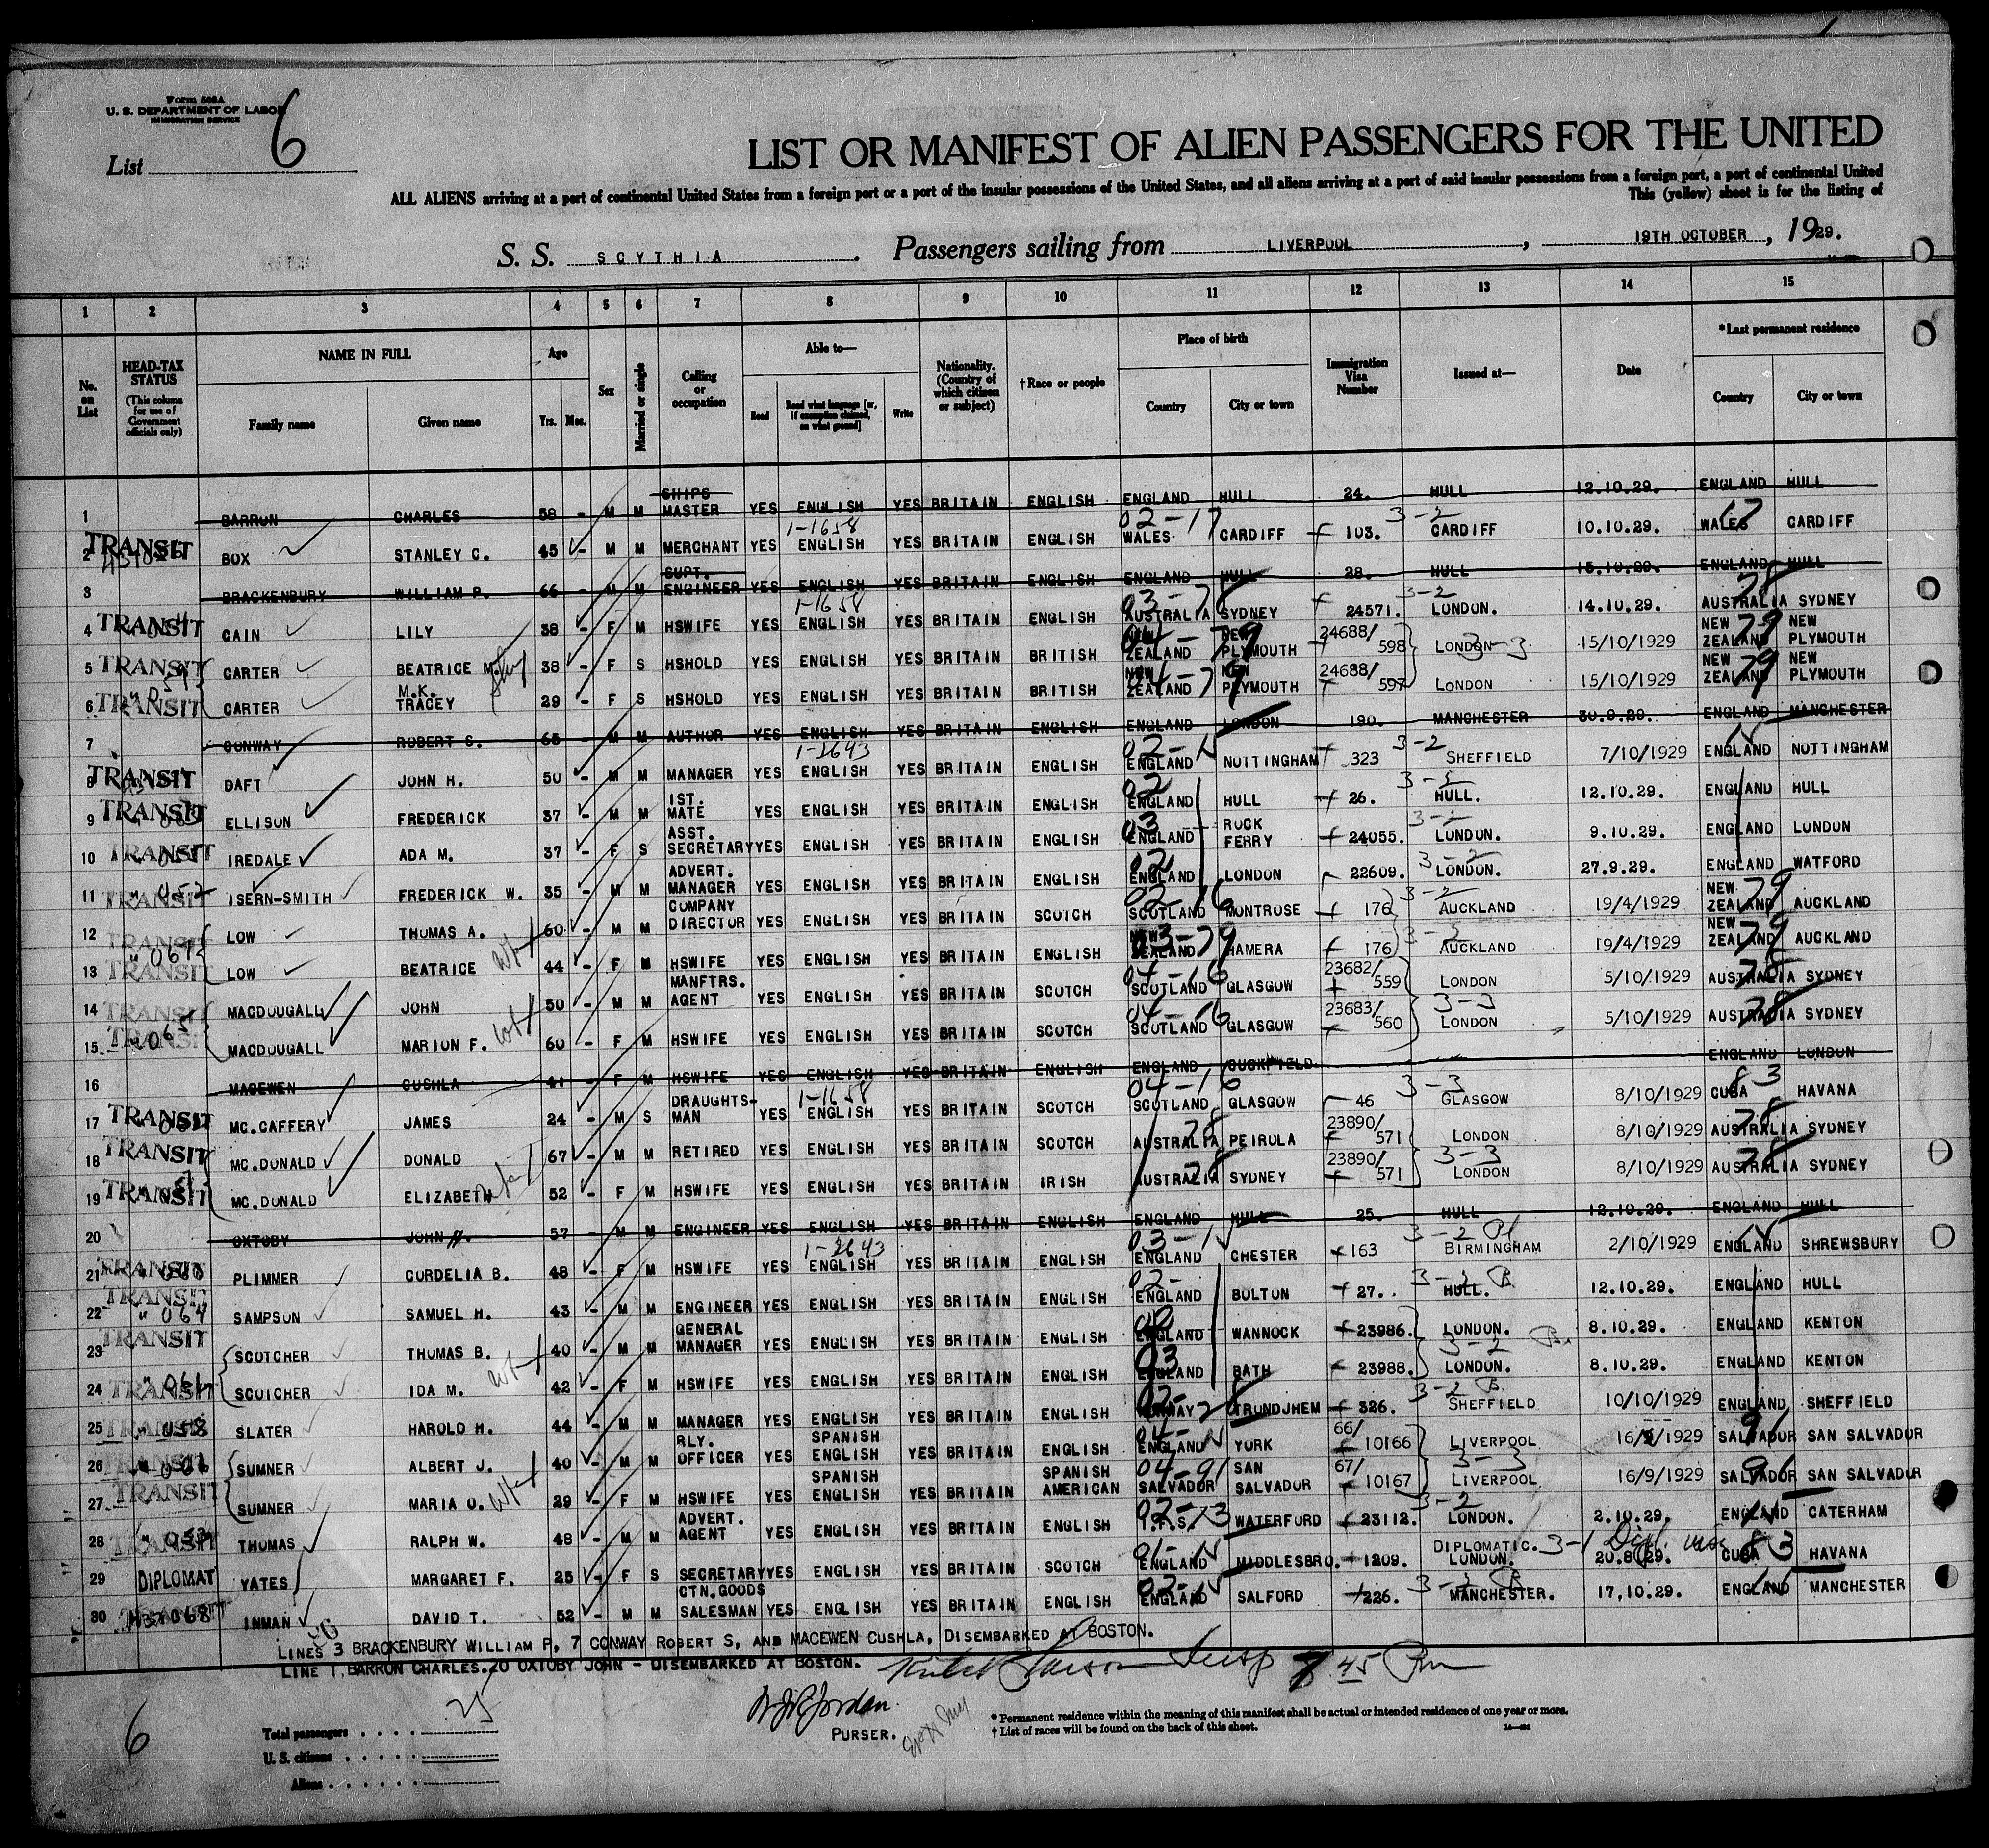 Form 500A
U. S. DEPARTMENT OF LABOR
IMMIGRATION SERVICE
List 6
LIST OR MANIFEST OF ALIEN PASSENGERS FOR THE UNITED
ALL ALIENS arriving at a port of continental United States from a foreign port or a port of the insular possessions of the United States, and all aliens arriving at a port of said insular possessions from a foreign port, a port of continental United
This (yellow) sheet is for the listing of
S. S. SCYTHIA . Passengers sailing from LIVERPOOL , 19TH OCTOBER , 1929.
1 2 3 4 5 6 7 8 9 10 11 12 13 14 15
No. on List
HEAD-TAX STATUS
(This column for use of Government officials only)
NAME IN FULL
Family name Given name
Age
Yrs. Mos.
Sex
Married or single
Calling or occupation
Able to—
Read
Read what language [or, if exemption claimed, on what ground]
Write
Nationality. (Country of which citizen or subject)
†Race or people
Place of birth
Country City or town
Immigration Visa Number
Issued at—
Date
*Last permanent residence
Country City or town
1 BARRON CHARLES 58 - M M SHIPS MASTER YES ENGLISH YES BRITAIN ENGLISH ENGLAND HULL 24. HULL 12.10.29. ENGLAND HULL
1-1658 02-17 3-2 17
2 TRANSIT BOX STANLEY C. 45 - M M MERCHANT YES ENGLISH YES BRITAIN ENGLISH WALES CARDIFF 103. CARDIFF 10.10.29. WALES CARDIFF
3 BRACKENBURY WILLIAM P. 66 - M M SUPT. ENGINEER YES ENGLISH YES BRITAIN ENGLISH ENGLAND HULL 28. HULL 15.10.29. ENGLAND HULL
1-1658 03-78 3-2 78
4 TRANSIT CAIN LILY 38 - F M HSWIFE YES ENGLISH YES BRITAIN ENGLISH AUSTRALIA SYDNEY 24571. LONDON. 14.10.29. AUSTRALIA SYDNEY
5 TRANSIT CARTER BEATRICE M. 38 - F S HSHOLD YES ENGLISH YES BRITAIN BRITISH NEW ZEALAND NEW PLYMOUTH 24688/598 LONDON 3-3 15/10/1929 NEW ZEALAND 79 NEW PLYMOUTH
6 TRANSIT CARTER M.K. TRACEY 29 - F S HSHOLD YES ENGLISH YES BRITAIN BRITISH NEW ZEALAND NEW PLYMOUTH 24688/597 LONDON 15/10/1929 NEW ZEALAND 79 NEW PLYMOUTH
7 CONWAY ROBERT S. 65 - M M AUTHOR YES ENGLISH YES BRITAIN ENGLISH ENGLAND LONDON 190. MANCHESTER 30.9.29. ENGLAND MANCHESTER
1-2643 3-2
8 TRANSIT DAFT JOHN H. 50 - M M MANAGER YES ENGLISH YES BRITAIN ENGLISH ENGLAND NOTTINGHAM 323 SHEFFIELD 7/10/1929 ENGLAND NOTTINGHAM
9 TRANSIT ELLISON FREDERICK 37 - M M 1ST. MATE YES ENGLISH YES BRITAIN ENGLISH 02 ENGLAND HULL 26. HULL. 12.10.29. ENGLAND HULL
10 TRANSIT IREDALE ADA M. 37 - F S ASST. SECRETARY YES ENGLISH YES BRITAIN ENGLISH 03 ENGLAND ROCK FERRY 24055. 3-2 LONDON. 9.10.29. ENGLAND LONDON
11 TRANSIT ISERN-SMITH FREDERICK W. 35 - M M ADVERT. MANAGER YES ENGLISH YES BRITAIN ENGLISH 02 ENGLAND LONDON 22609. 3-2 LONDON. 27.9.29. ENGLAND WATFORD
12 TRANSIT LOW THOMAS A. 60 - M M COMPANY DIRECTOR YES ENGLISH YES BRITAIN SCOTCH 02-16 SCOTLAND MONTROSE 176 3-2 AUCKLAND 19/4/1929 NEW ZEALAND 79 AUCKLAND
13 TRANSIT LOW BEATRICE 44 - F M HSWIFE YES ENGLISH YES BRITAIN ENGLISH 03-79 NEW ZEALAND HAMERA 176 AUCKLAND 19/4/1929 NEW ZEALAND 79 AUCKLAND
14 TRANSIT MACDOUGALL JOHN 50 - M M MANFTRS. AGENT YES ENGLISH YES BRITAIN SCOTCH 04-16 SCOTLAND GLASGOW 23682/559 LONDON 5/10/1929 AUSTRALIA 78 SYDNEY
15 TRANSIT MACDOUGALL MARION F. 60 - F M HSWIFE YES ENGLISH YES BRITAIN SCOTCH 04-16 SCOTLAND GLASGOW 23683/560 3-3 LONDON 5/10/1929 AUSTRALIA 78 SYDNEY
16 MACEWEN CUSHLA 41 - F M HSWIFE YES ENGLISH YES BRITAIN ENGLISH ENGLAND CUCKFIELD ENGLAND LONDON
1-1658 04-16 3-3 83
17 TRANSIT MC.CAFFERY JAMES 24 - M S DRAUGHTS-MAN YES ENGLISH YES BRITAIN SCOTCH SCOTLAND GLASGOW 46 GLASGOW 8/10/1929 CUBA HAVANA
18 TRANSIT MC.DONALD DONALD 67 - M M RETIRED YES ENGLISH YES BRITAIN SCOTCH AUSTRALIA 78 PEIROLA 23890/571 LONDON 8/10/1929 AUSTRALIA 78 SYDNEY
19 TRANSIT MC.DONALD ELIZABETH 52 - F M HSWIFE YES ENGLISH YES BRITAIN IRISH AUSTRALIA 78 SYDNEY 23890/571 3-3 LONDON 8/10/1929 AUSTRALIA 78 SYDNEY
20 OXTOBY JOHN 57 - M M ENGINEER YES ENGLISH YES BRITAIN ENGLISH ENGLAND HULL 25. HULL 12.10.29. ENGLAND HULL
1-2643 3-2
21 TRANSIT PLIMMER CORDELIA B. 48 - F M HSWIFE YES ENGLISH YES BRITAIN ENGLISH ENGLAND CHESTER 163 BIRMINGHAM 2/10/1929 ENGLAND SHREWSBURY
22 TRANSIT 064 SAMPSON SAMUEL H. 43 - M M ENGINEER YES ENGLISH YES BRITAIN ENGLISH 02- ENGLAND BOLTON 27. HULL. 12.10.29. ENGLAND HULL
23 TRANSIT SCOTCHER THOMAS B. 40 - M M GENERAL MANAGER YES ENGLISH YES BRITAIN ENGLISH ENGLAND WANNOCK 23986. LONDON. 8.10.29. ENGLAND KENTON
24 TRANSIT 061 SCOTCHER IDA M. 42 - F M HSWIFE YES ENGLISH YES BRITAIN ENGLISH 03 ENGLAND BATH 23988. 3-2 LONDON. 8.10.29. ENGLAND KENTON
25 TRANSIT 058 SLATER HAROLD H. 44 - M M MANAGER YES ENGLISH YES BRITAIN ENGLISH NORWAY TRONDJHEM 326. 3-2 SHEFFIELD 10/10/1929 ENGLAND SHEFFIELD
26 TRANSIT SUMNER ALBERT J. 40 - M M RLY. OFFICER YES SPANISH ENGLISH YES BRITAIN ENGLISH ENGLAND YORK 66/10166 LIVERPOOL 16/9/1929 SALVADOR 91 SAN SALVADOR
27 TRANSIT SUMNER MARIA O. 29 - F M HSWIFE YES SPANISH ENGLISH YES BRITAIN SPANISH AMERICAN 04-91 SALVADOR SAN SALVADOR 67/10167 3-3 LIVERPOOL 16/9/1929 SALVADOR SAN SALVADOR
28 TRANSIT THOMAS RALPH W. 48 - M M ADVERT. AGENT YES ENGLISH YES BRITAIN ENGLISH I.F.S. WATERFORD 23112. 3-2 LONDON. 2.10.29. ENGLAND CATERHAM
29 DIPLOMAT YATES MARGARET F. 25 - F S SECRETARY YES ENGLISH YES BRITAIN SCOTCH ENGLAND MIDDLESBRO. 1209. DIPLOMATIC. LONDON. 3-1 Dipl. visa 20.8.29. CUBA 83 HAVANA
30 TRANSIT 068 INMAN DAVID T. 52 - M M CTN.GOODS SALESMAN YES ENGLISH YES BRITAIN ENGLISH ENGLAND SALFORD 226. MANCHESTER. 17.10.29. ENGLAND MANCHESTER
LINES 3 BRACKENBURY WILLIAM P, 7 CONWAY ROBERT S, AND MACEWEN CUSHLA, DISEMBARKED AT BOSTON.
LINE 1, BARRON CHARLES. 20 OXTOBY JOHN - DISEMBARKED AT BOSTON.
Insp 45 Pm
Jordan.
PURSER.
6
Total passengers 25
U. S. citizens
Aliens
* Permanent residence within the meaning of this manifest shall be actual or intended residence of one year or more.
† List of races will be found on the back of this sheet.